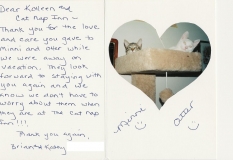 Dear Kolleen and
Cat Nap Inn ~
Thank you for the love
and care you gave to
Minni and Otter while
we were away on
vacation. They look
forward to staying with
you again and we
know we don't have to
worry about them when
they are at the Cat Nap
Inn!!!
Thank you again,
Brian &
Minni
Otter